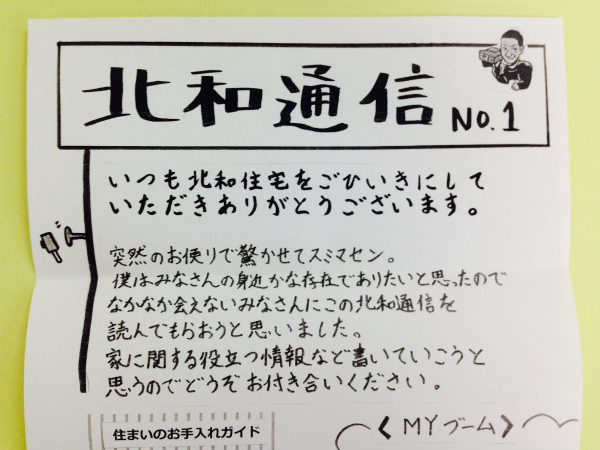 北和通信 NO.1
いつも北和住宅をごひいきにして
いただきありがとうございます。
突然のお便りで驚かせてスミマセン。
僕はみなさんの身近かな存在でありたいと思ったので
なかなか会えないみなさんにこの北和通信を
読んでもらおうと思いました。
家に関する役立つ情報など書いていこうと
思うのでどうぞお付き合いください。
住まいのお手入れガイド
〈MYブーム〉